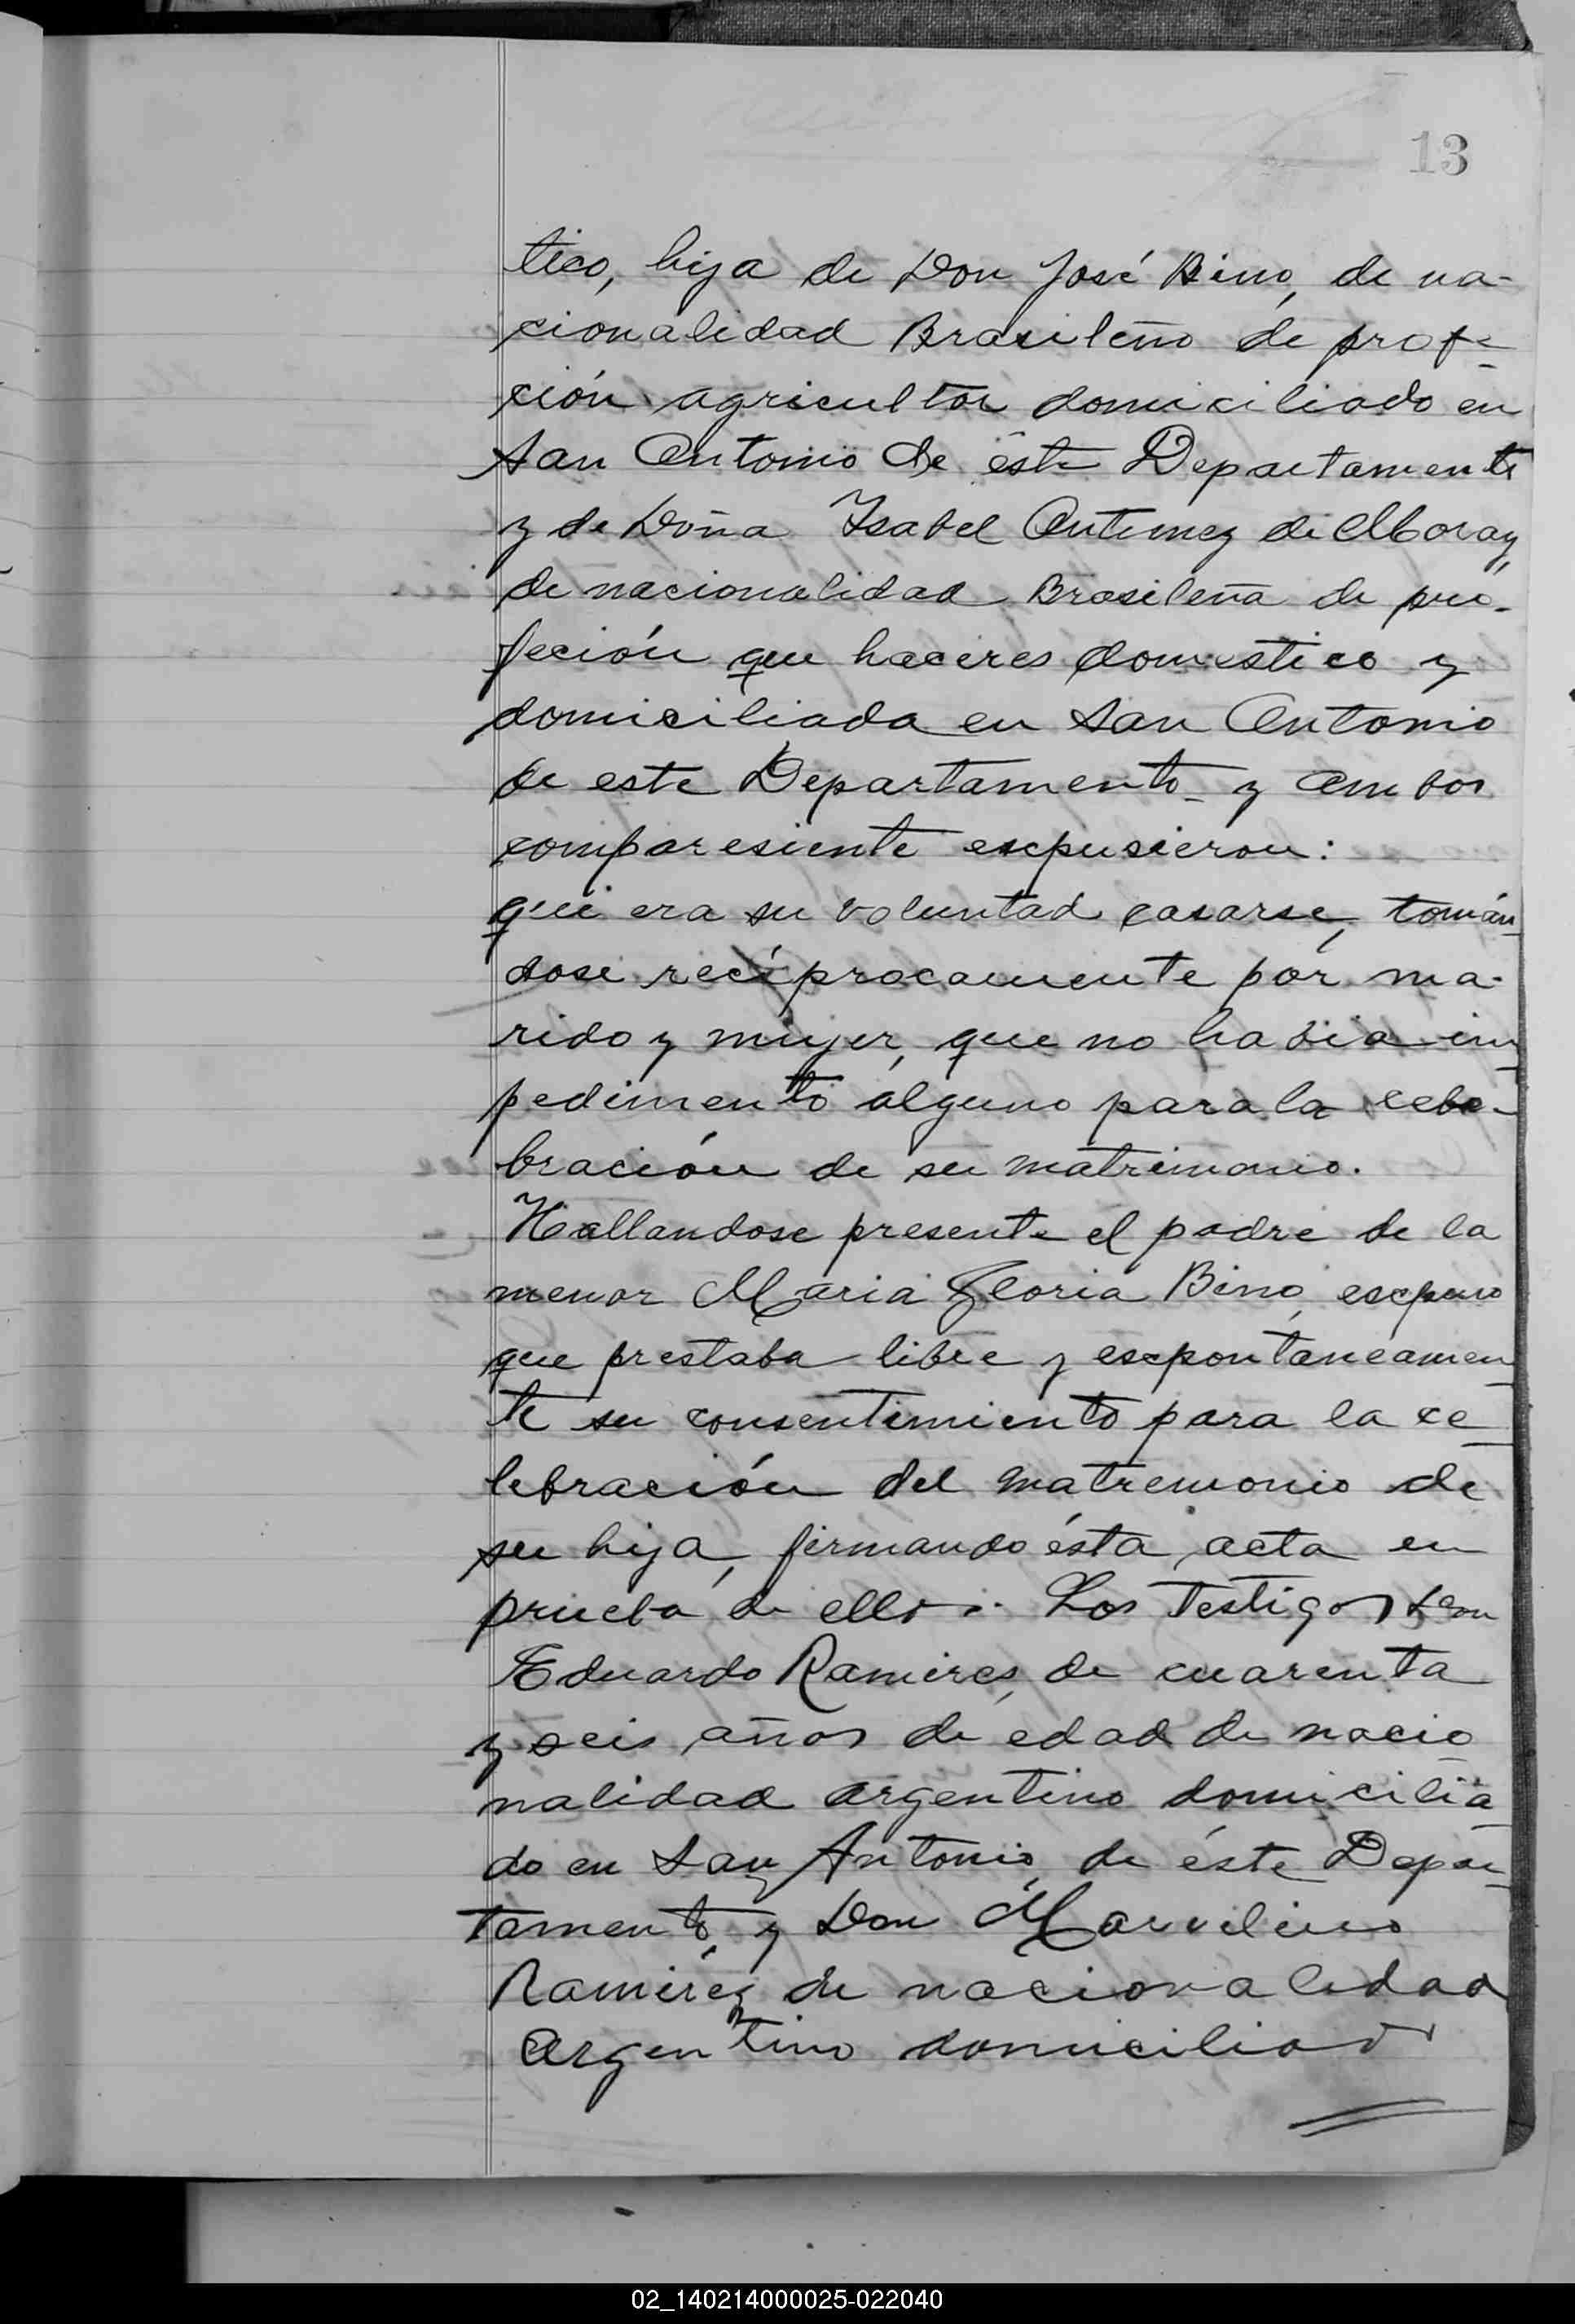 13
tico, hija de Don José Bino, de na-
cionalidad Brasileño de profe-
ción agricultor domiciliado en
San Antonio de éste Departamento
y de Doña Isabel Antunez de Moray,
de nacionalidad Brasileña de pro-
feción que haceres domestico y
domiciliada en San Antonio
de este Departamento y ambos
comparesiente expusieron:
que era su voluntad casarse, tomán-
dose recíprocamente por ma-
rido y mujer, que no habia im-
pedimento alguno para la cele-
bración de su matrimonio.
Hallandose presente el padre de la
menor Maria Gloria Bino, expuso
que prestaba libre y expontaneamen-
te su consentimiento para la ce-
lebración del matremonio de
su hija, firmando ésta acta en
prueba de ello. Los Testigos Don
Eduardo Ramires, de cuarenta
y seis años de edad de nacio-
nalidad argentino domicilia-
do en San Antonio, de éste Depar-
tamento, y Don Marcelino
Ramírez de nacionalidad
Argentino domiciliado
02_140214000025-022040